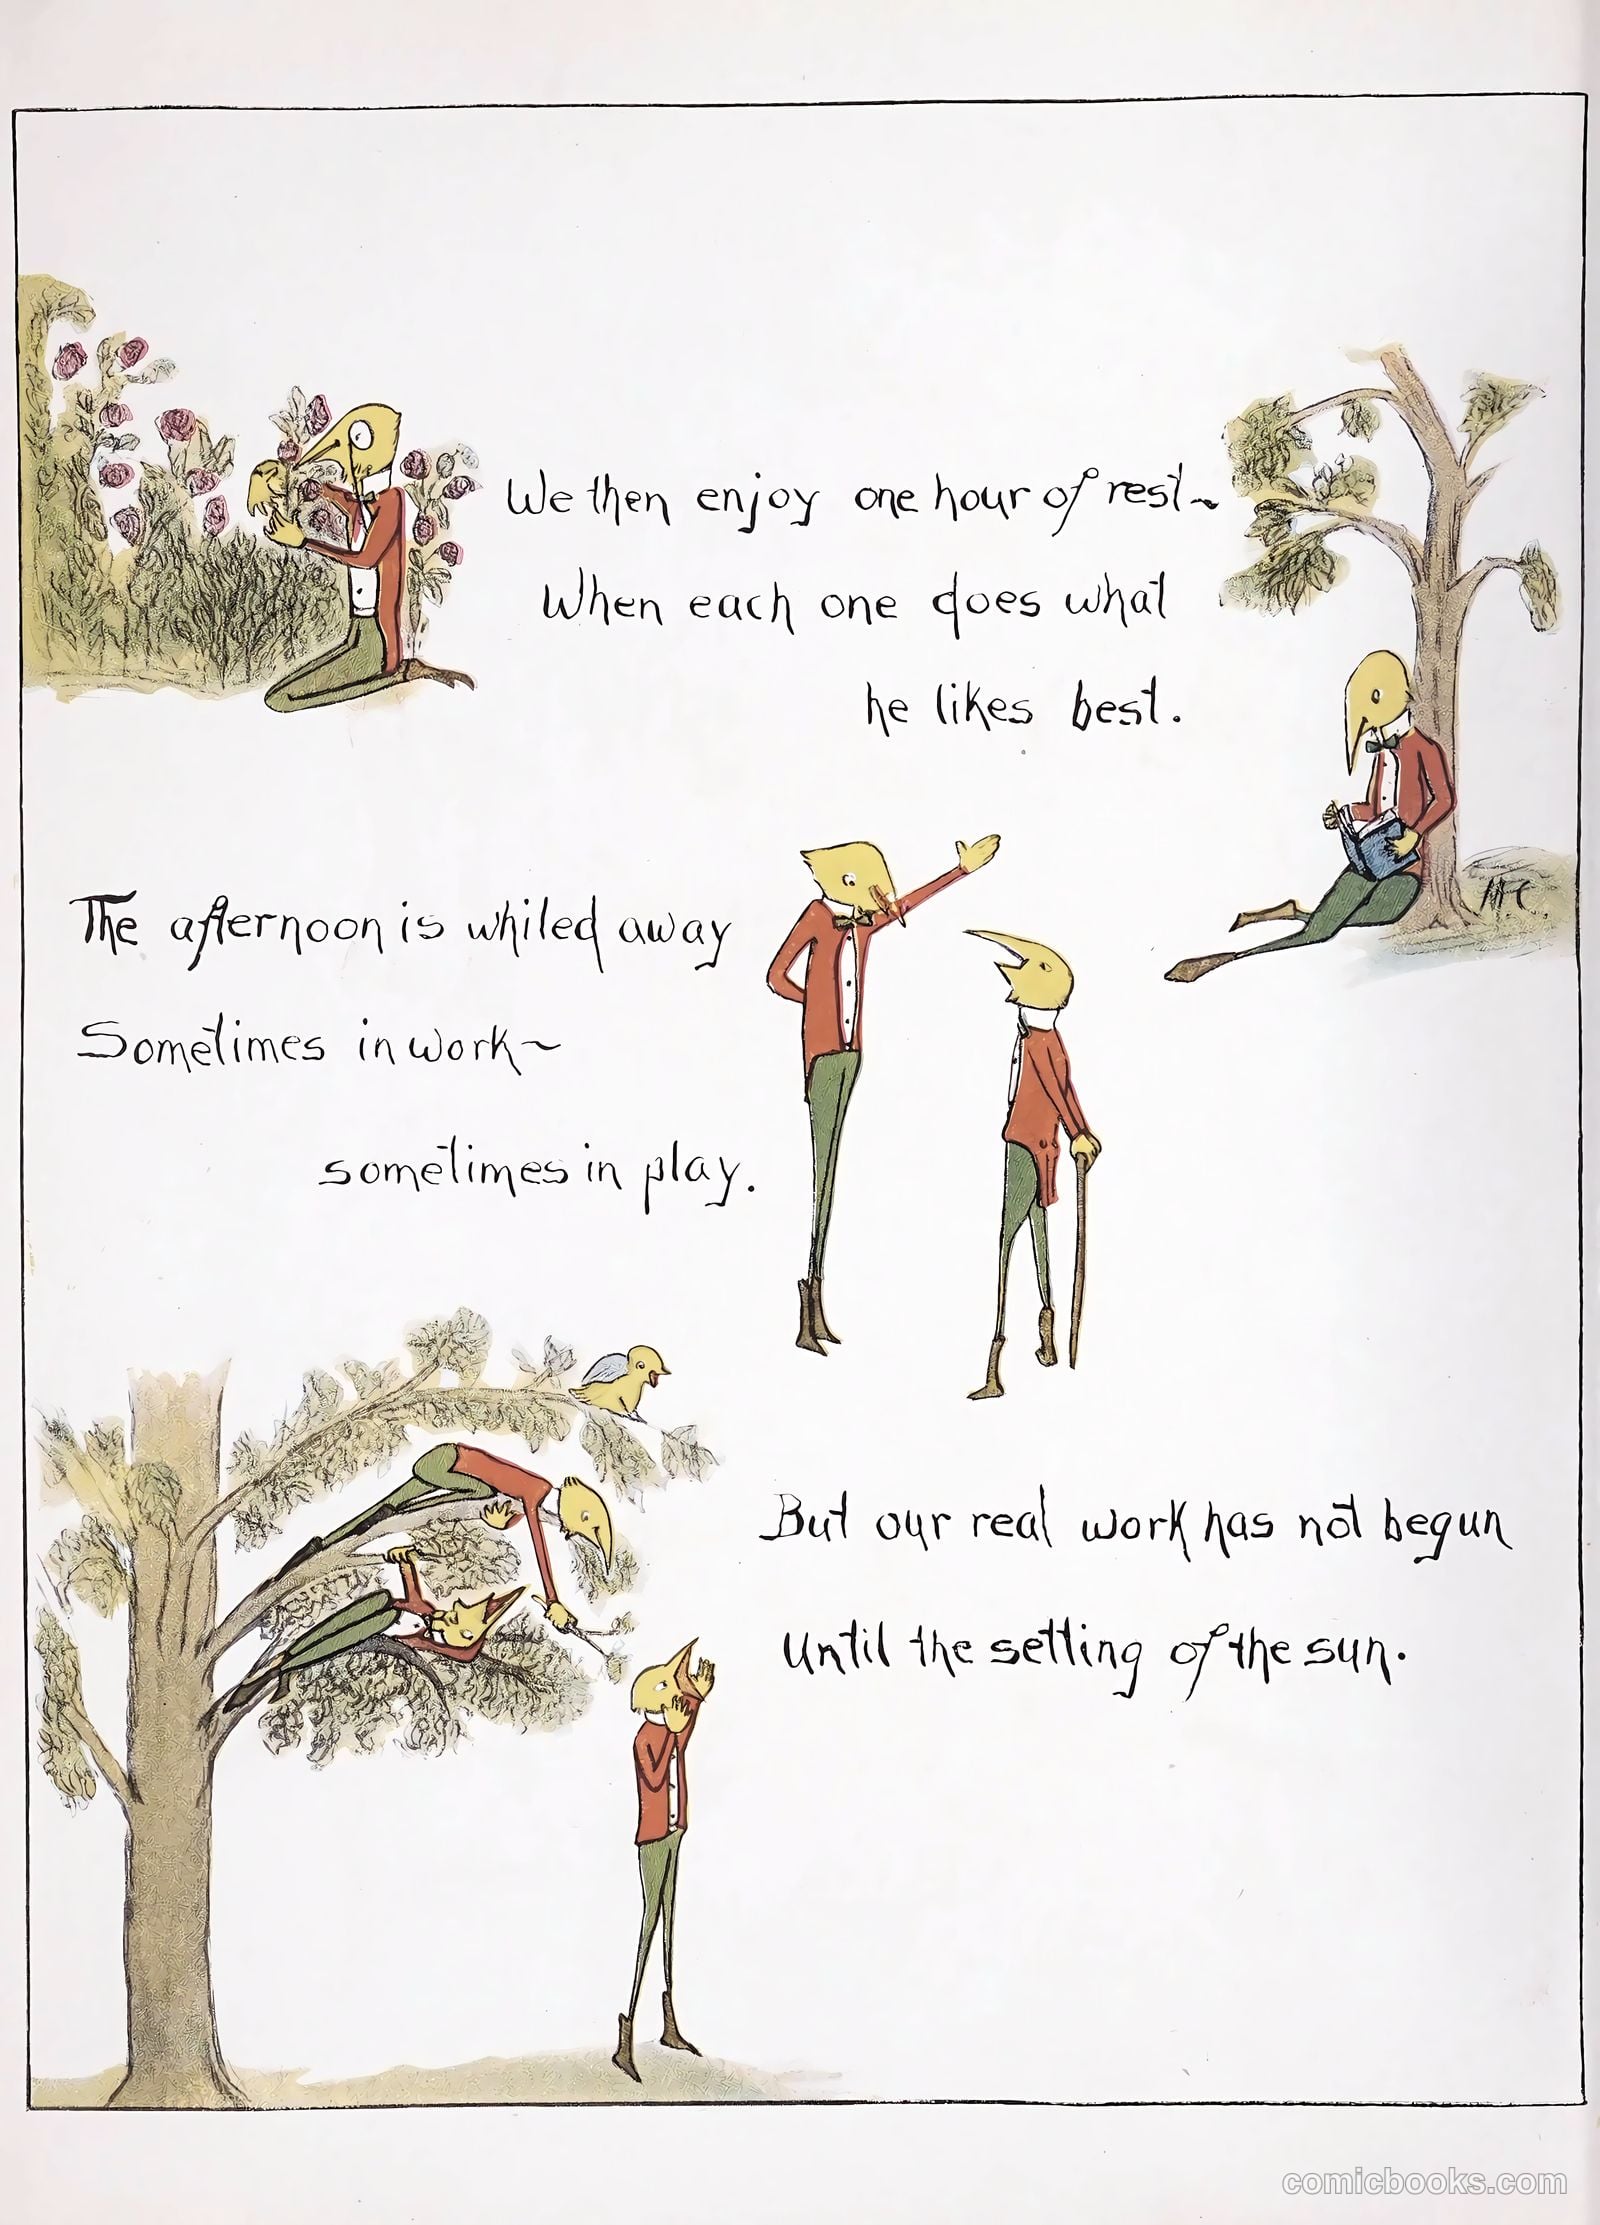 We then enjoy one hour of rest~
When each one does what
he likes best.
The afternoon is whiled away
Sometimes in work~
sometimes in play.
But our real work has not begun
Until the setting of the sun.
comicbooks.com